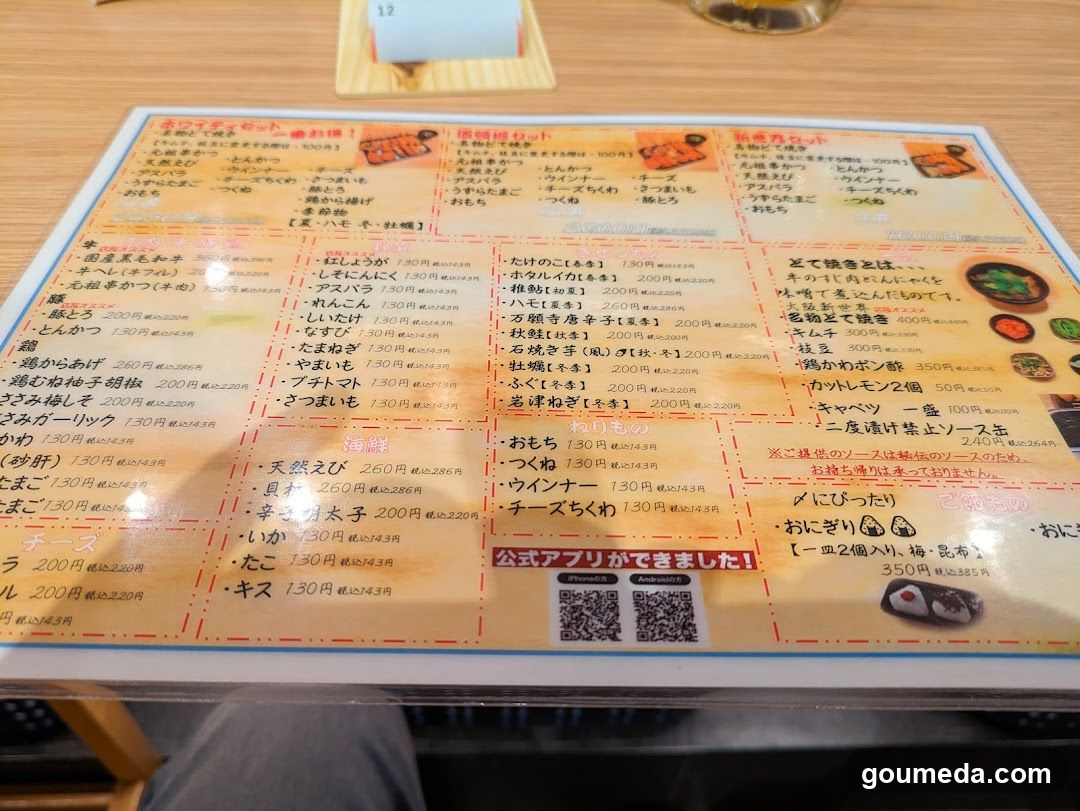 12
ホワイティセット
一番お得！
・名物どて焼き
【キムチ、枝豆に変更する際は、-100円】
・元祖串かつ
・とんかつ
・チーズ
・天然えび
・ウインナー
・さつまいも
・アスパラ
・チーズちくわ
・豚とろ
・うずらたまご
・つくね
・鶏から揚げ
・おもち
・季節物
【夏・ハモ 冬・牡蠣】
セット
・名物どて焼き
【キムチ、枝豆に変更する際は、-100円】
・元祖串かつ
・とんかつ
・チーズ
・天然えび
・ウインナー
・さつまいも
・アスパラ
・チーズちくわ
・豚とろ
・うずらたまご
・つくね
・おもち
2000円
新世界セット
・名物どて焼き
【キムチ、枝豆に変更する際は、-100円】
・元祖串かつ
・とんかつ
・天然えび
・ウインナー
・アスパラ
・チーズちくわ
・うずらたまご
・つくね
・おもち
牛
店長オススメ
・国産黒毛和牛 360円税込396円
・牛ヘレ(牛フィレ) 200円
・元祖串かつ(牛肉) 130円税込143円
豚
店長オススメ
・豚とろ 200円税込220円
・とんかつ 130円税込143円
鶏
・鶏からあげ 260円税込286円
・鶏むね柚子胡椒 200円税込220円
ささみ梅しそ 200円税込220円
ささみガーリック 130円税込143円
かわ 130円税込143円
(砂肝) 130円税込143円
たまご 130円税込143円
たまご 130円税込143円
チーズ
200円税込220円
ル 200円税込220円
店長オススメ
・紅しょうが 130円税込143円
・しそにんにく 130円税込143円
・アスパラ 130円税込143円
・れんこん 130円税込143円
・しいたけ 130円税込143円
・なすび 130円税込143円
・たまねぎ 130円税込143円
・やまいも 130円税込143円
・プチトマト 130円税込143円
・さつまいも 130円税込143円
海鮮
・天然えび 260円税込286円
・貝柱 260円税込286円
・辛子明太子 200円税込220円
・いか 130円税込143円
・たこ 130円税込143円
・キス 130円税込143円
・たけのこ【春季】 130円税込143円
・ホタルイカ【春季】 200円税込220円
・稚鮎【初夏】 200円税込220円
・ハモ【夏季】 260円税込286円
・万願寺唐辛子【夏季】 200円税込220円
・秋鮭【秋季】 200円税込220円
・石焼き芋(風)【秋・冬】 200円税込220円
・牡蠣【冬季】 200円税込220円
・ふぐ【冬季】 200円税込220円
・岩津ねぎ【冬季】 200円税込220円
ねりもの
・おもち 130円税込143円
・つくね 130円税込143円
・ウインナー 130円税込143円
・チーズちくわ 130円税込143円
公式アプリができました！
iPhoneの方
Androidの方
どて焼きとは、、、
牛のすじ肉とこんにゃくを
味噌で煮込んだものです。
大阪新世界 店長オススメ
名物どて焼き 400円税込440円
・キムチ 300円税込330円
・枝豆 300円税込330円
・鶏かわポン酢 350円税込385円
・カットレモン2個 50円税込55円
・キャベツ 一盛 100円税込110円
・二度漬け禁止ソース缶
240円税込264円
※ご提供のソースは秘伝のソースのため、
お持ち帰りは承っておりません。
〆にぴったり
ご飯もの
・おにぎり
【一皿2個入り、梅・昆布】
350円税込385円
・おに
goumeda.com